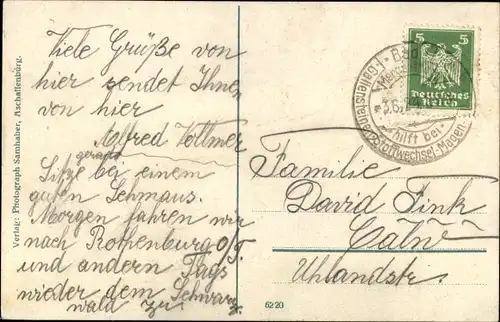 Viele Grüße von
hier sendet Ihnen
von hier
Alfred Vollmer
gerade
Sitze bei einem
guten Schmaus.
Morgen fahren wir
nach Rothenburg o/T.
und andern Tags
wieder dem Schwarz
wald zu
Verlag: Photograph Samhaber, Aschaffenburg.
5 5
Deutsches
Reich
Bad
Mer
3.6.
hilft bei
Stoffwechsel-Magen-
Familie
David Fink
Calw
Uhlandstr.
6220